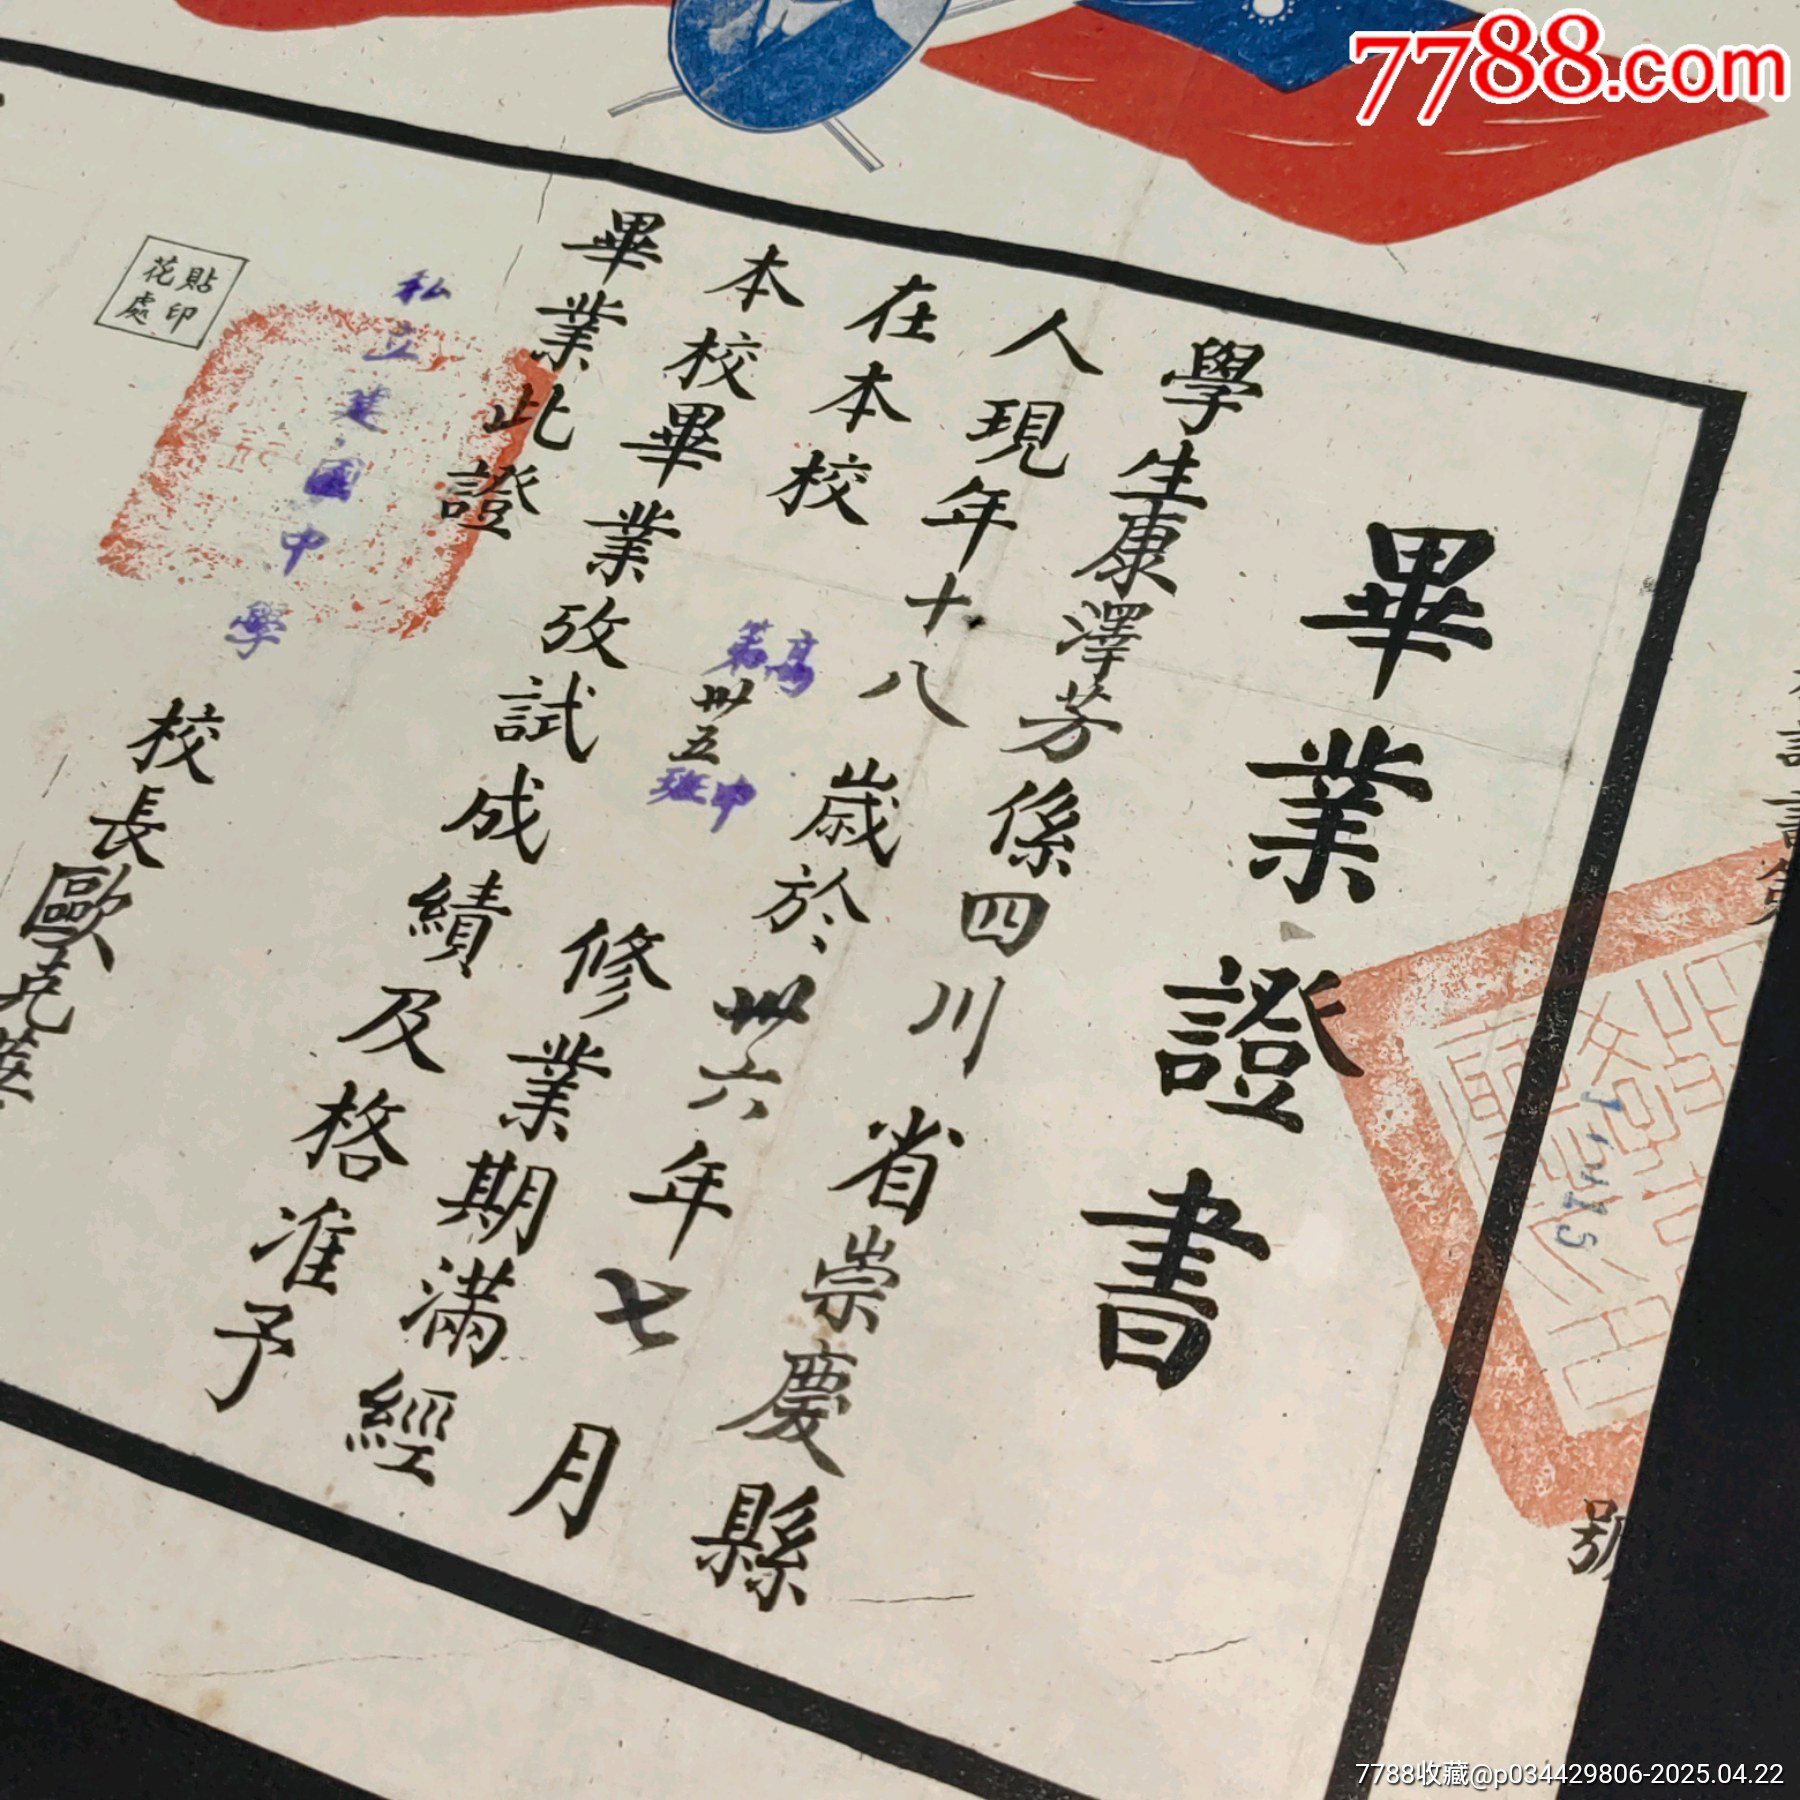 7788.com
畢業證書
學生康澤芳係四川省崇慶縣
人現年十八歲於卅六年七月
在本校高中第卅五班修業期滿經
本校畢業攷試成績及格准予
畢業此證
私立建國中學
校長歐克
貼印花處
號
7788收藏@p034429806-2025.04.22